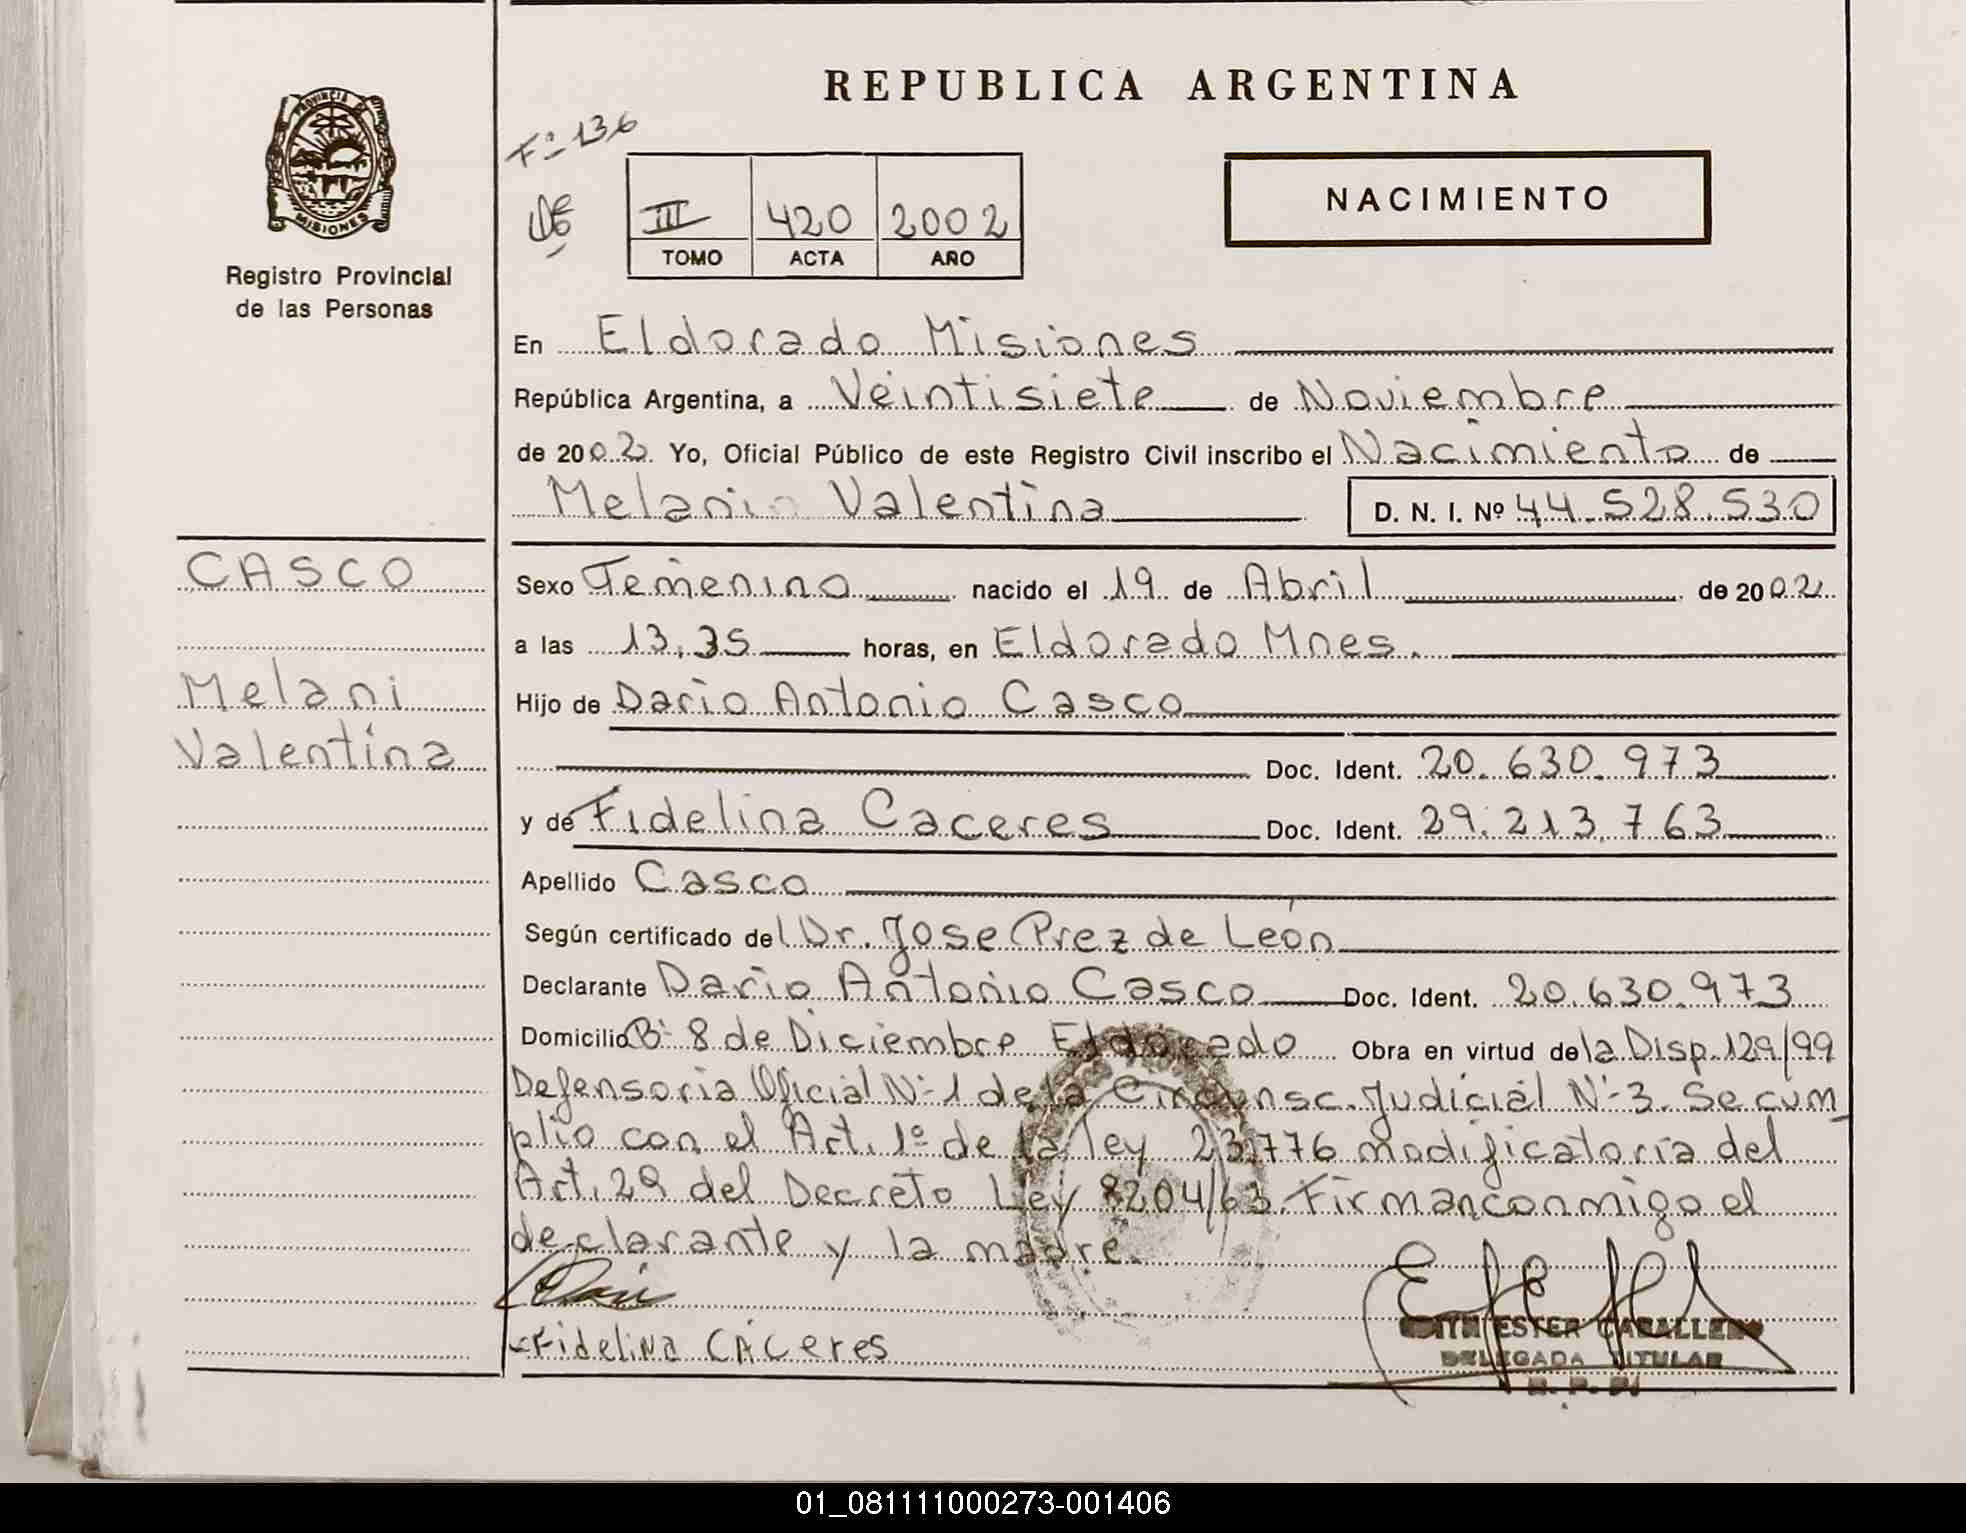 REPUBLICA ARGENTINA
Fº 136
PROVINCIA DE
MISIONES
Registro Provincial
de las Personas
III 420 2002
TOMO ACTA AÑO
NACIMIENTO
En Eldorado Misiones
República Argentina, a Veintisiete de Noviembre
de 2002 Yo, Oficial Público de este Registro Civil inscribo el Nacimiento de
Melani Valentina D. N. I. Nº 44.528.530
CASCO
Melani
Valentina
Sexo Femenino nacido el 19 de Abril de 2002
a las 13,35 horas, en Eldorado Mnes.
Hijo de Dario Antonio Casco
Doc. Ident. 20.630.973
y de Fidelina Caceres Doc. Ident. 29.213.763
Apellido Casco
Según certificado del Dr. Jose Prez de León
Declarante Dario Antonio Casco Doc. Ident. 20.630.973
Domicilio Bº 8 de Diciembre Eldorado Obra en virtud de la Disp. 129/99
Defensoria Oficial Nº 1 de la Circunsc. Judicial Nº 3. Se cum
plio con el Art. 1º de la ley 23.776 modificatoria del
Art. 29 del Decreto Ley 8204/63. Firman conmigo el
declarante y la madre.
Fidelina CÁCeres
ESTER CABALLERO
DELEGADA TITULAR
R. P. P.
01_081111000273-001406